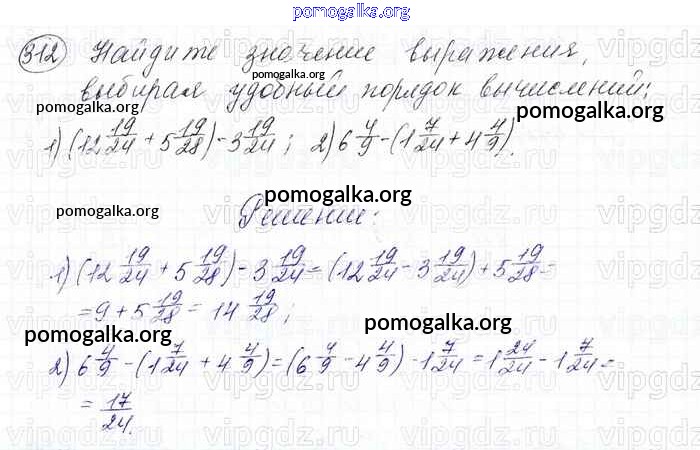 pomogalka.org
312 Найдите значение выражения,
pomogalka.org
выбирая удобный порядок вычислений:
pomogalka.org pomogalka.org
1) (12 19/24 + 5 19/28) - 3 19/24; 2) 6 4/9 - (1 7/24 + 4 4/9).
pomogalka.org
pomogalka.org
Решение:
1) (12 19/24 + 5 19/28) - 3 19/24 = (12 19/24 - 3 19/24) + 5 19/28 =
= 9 + 5 19/28 = 14 19/28;
pomogalka.org pomogalka.org
2) 6 4/9 - (1 7/24 + 4 4/9) = (6 4/9 - 4 4/9) - 1 7/24 = 1 24/24 - 1 7/24 =
= 17/24.
vipgdz.ru